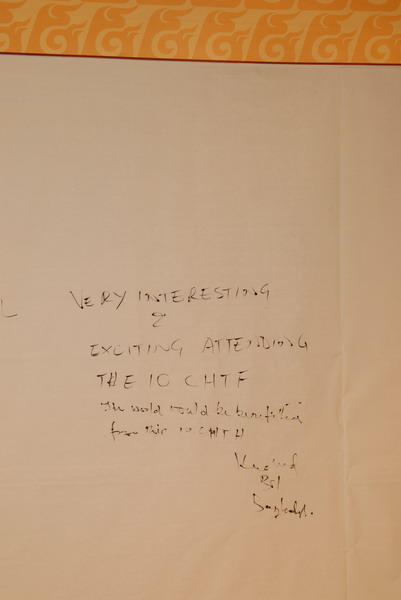 L
VERY INTERESTING
&
EXCITING ATTENDING
THE 10 CHTF
The world would be benefitted
from this 10 CHTH